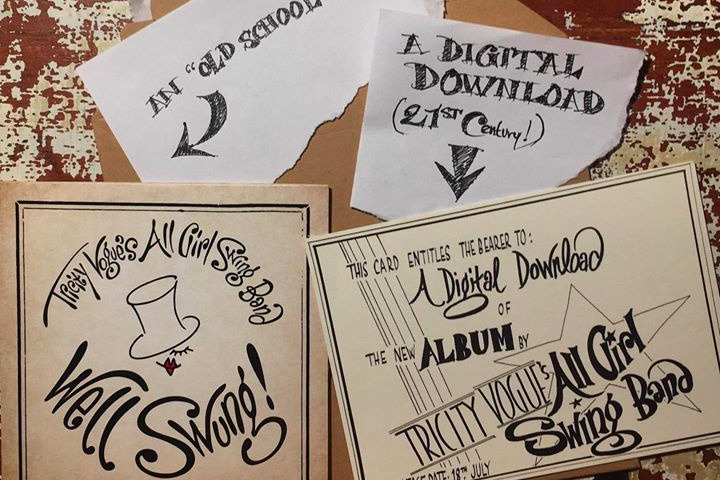 AN "OLD SCHOOL
A DIGITAL
DOWNLOAD
(21ST CENTURY!)
Tricity Vogue's All Girl Swing Band
Well Swung!
THIS CARD ENTITLES THE BEARER TO:
A Digital Download
OF
THE NEW ALBUM BY
TRICITY VOGUE's All Girl
Swing Band
DATE: 18TH JULY